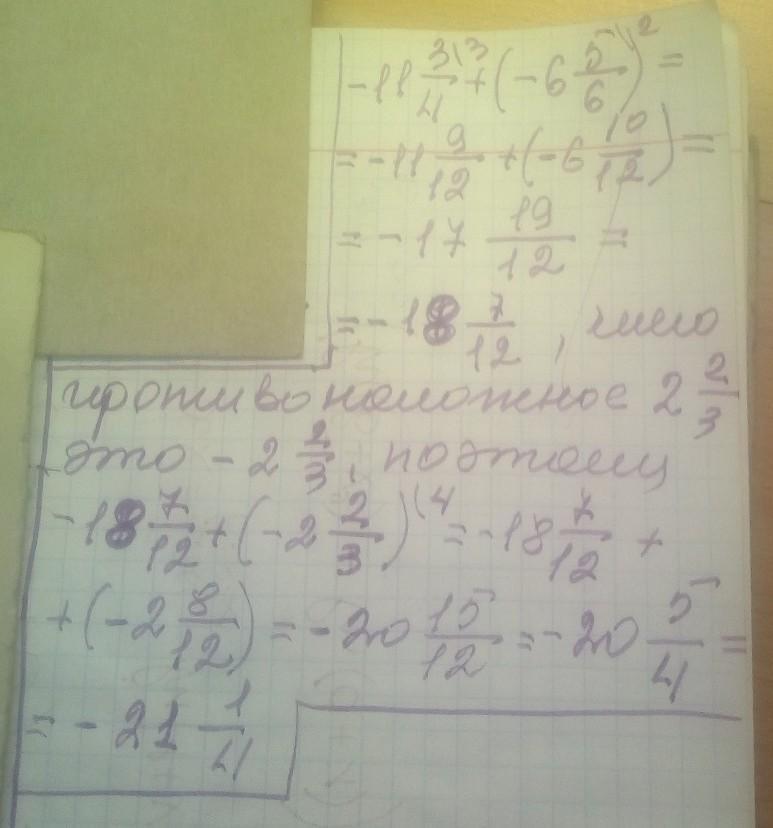 -11 3/4 \3 + (-6 5/6) \2 =
= -11 9/12 + (-6 10/12) =
= -17 19/12 =
= -18 7/12, число
противоположное 2 2/3
это -2 2/3, поэтому
-18 7/12 + (-2 2/3) \4 = -18 7/12 +
+ (-2 8/12) = -20 15/12 = -20 5/4 =
= -21 1/4